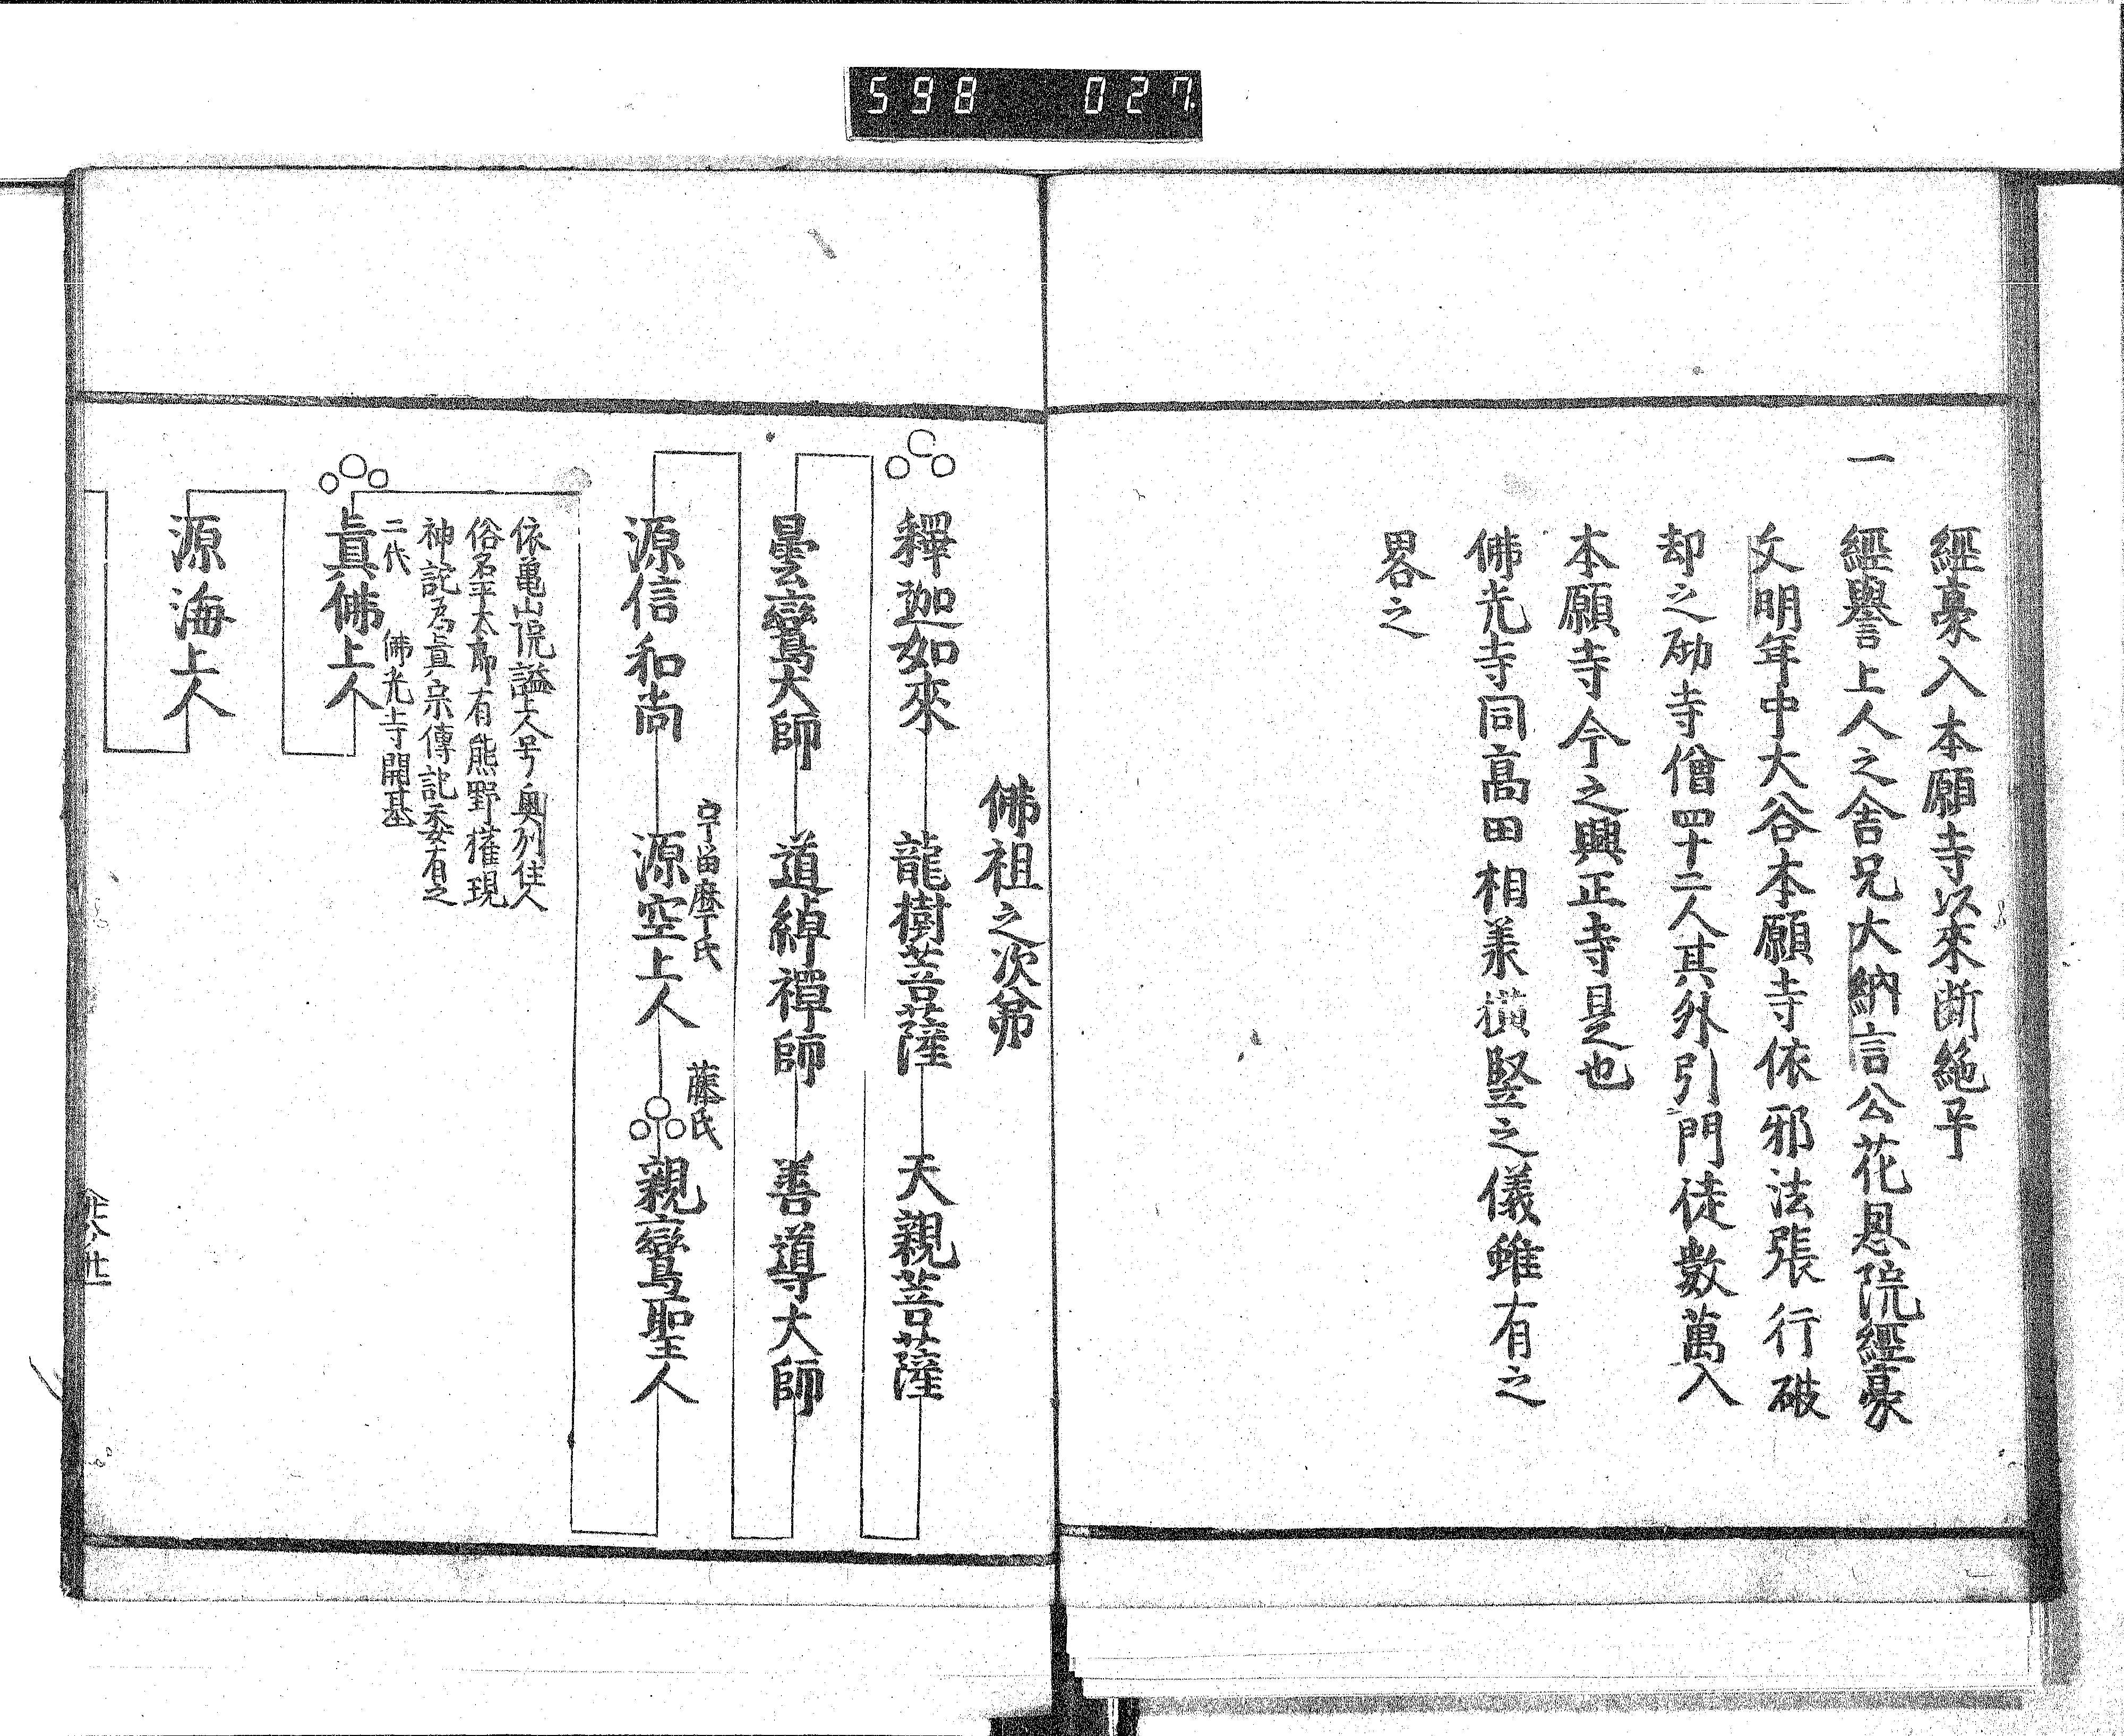 598 027
經豪入本願寺以來断絶乎
一 經譽上人之舎兄大納言公花恩院經豪
文明年中大谷本願寺依邪法張行破
却之砌寺僧四十二人其外引門徒數萬入
本願寺今之興正寺是也
佛光寺同髙田相兼横竪之儀雖有之
畧之
佛祖之次第
釋迦如來 龍樹菩薩 天親菩薩
曇鸞大師 道綽禪師 善導大師
宇留麻氏 藤氏
源信和尚 源空上人 親鸞聖人
依亀山院謚上人号奥州住人
俗名平太郎有熊野權現
神詫為眞宗傳記委有之
二代 佛光寺開基
眞佛上人
源海上人